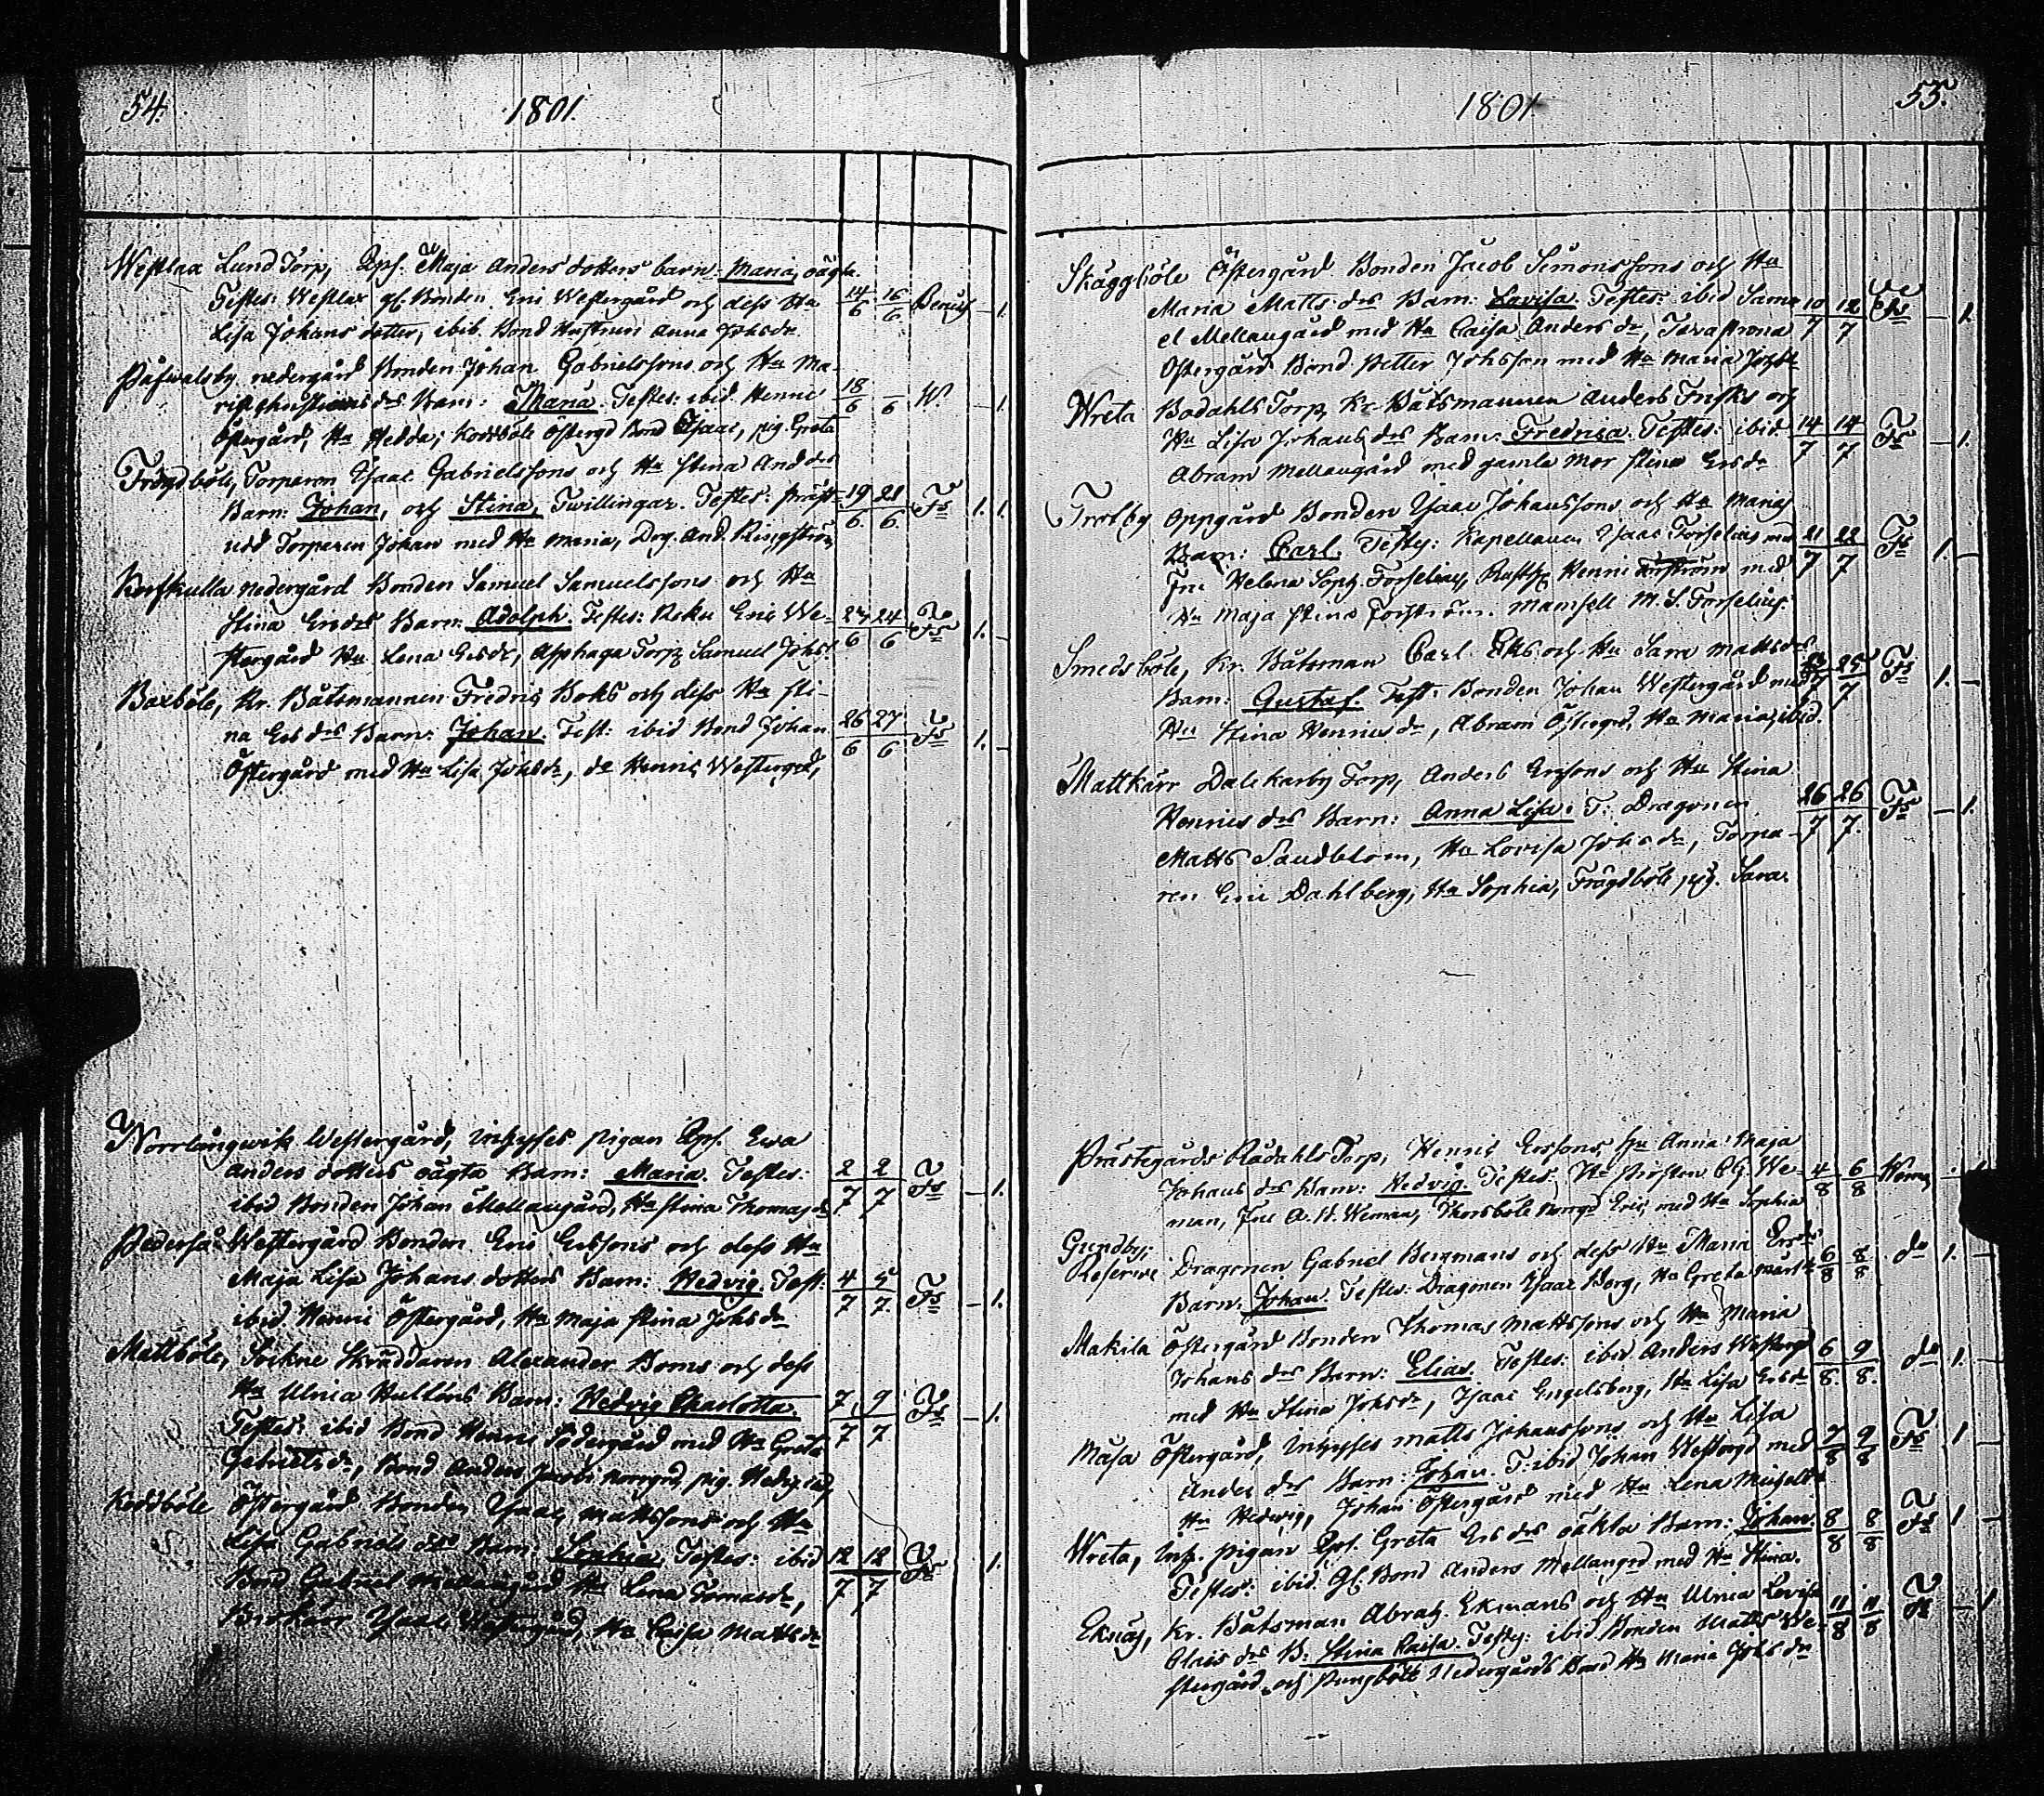 54.
1801.
Westlax Lund Torp, Qps. Maja Anders dotters barn. Maria, oägta.
Testes: Westlax gl. Bonden Eric Westergård och dess Hu 14/6 16/6 - 1.
Lisa Johans dotter, ibid. Bond Hustrun Anna Johsdr
Påfwalsby nedergård Bonden Johan Gabrielssons och Hu Ma-
Barn: Maria. Testes: ibid Henric 18/6 -/6 W. - 1.
Östergård, Hu Hedda; Koddböle Östergd Bond Isaac, pig. Greta
Frögdböle, Torparen Isaac Gabrielssons och Hu Stina And drs
Barn: Johan, och Stina, Twillingar. Testes: Präst- 19/6 21/6 Fs 1. 1.
Torparen Johan med Hu Maria, Drg. And. Ringström
nedergård Bonden Samuel Samuelssons och Hu
Stina Ersdrs Barn: Adolph. Testes: Eric We- 23/6 24/6 Fs 1. -
stergård Hu Lena Ersdr, Torp Samuel Johs
Boxböle, Kr. Båtsmannen Fredric Boks och dess Hu Sti-
na Ers drs Barn: Johan. Test: ibid Bond Johan 26/6 27/6 Fs 1. -
Östergård med Hu Lisa Johsdr, do Henric Westergrd,
Norrlångwik Westergård, Inhyses pigan Qps. Ewa
Anders dotters oägta Barn: Maria. Testes: 2/7 2/7 Fs - 1.
ibid Bonden Johan Mellangård, Hu Stina Thomasdr
Pederså Westergård Bonden Eric Erssons och dess Hu
Maja Lisa Johans dotters Barn: Hedvig. Test: 4/7 5/7 Fs - 1.
ibid Henric Östergård, Hu Maja Stina Johsdr
Mattböle, Sockne Skräddaren Alexander Boms och dess
Hu Ulrica Hulténs Barn: Hedvig Charlotta. 7/7 9/7 Fs - 1.
Testes: ibid Bond Henric Södergård med Hu Greta
Gabrielsdr, Bond Anders Jacobs norrgrd, pig. Hedvig
Koddböle Östergård Bonden Isaac Mattssons och Hu
Lisa Gabriels drs Barn: Sophia Testes: ibid 12/7 12/7 Fs 1.
Bond Gabriel Mellangård Hu Lena Tomasdr,
Isaac Westergård, Hu Caisa Mattsdr
1801.
55.
Skäggböle Östergård Bonden Jacob Simonssons och Hu
Maria Matts drs Barn: Lovisa. Testes: ibid Samu- 10/7 12/7 - 1.
el Mellangård med Hu Caisa Anders dr,
Östergård Bond Petter Johsson med Hu Maria
Wreta Bodahls Torp, Kr. Båtsmannen Anders Frisks och
Hu Lisa Johans drs Barn: Fredrica. Testes: ibid 14/7 14/7 Fs - 1.
Abram Mellangård med gamla mor Stina Ersdr
Trotby oppgård Bonden Isaac Johanssons och Hu Marias
Barn: Carl. Testes: Kapellanen Isaac Forselius med 21/7 22/7 Fs 1. -
Fru Helena Soph. Forselius, Henric Forström med
Hu Maja Stina Forström. Mamsell M. S. Forselius.
Smedsböle, Kr. Båtsman Carl Eks och Hu Sara Mattsdrs
Barn: Gustaf. Test: Bonden Johan Westergård med 23/7 25/7 Fs 1. -
Hu Stina Henricsdr, Abram Östergrd, Hu Maria, ibid.
Mattkärr Dalkarby Torp, Anders Erssons och Hu Stina
Henrics drs Barn: Anna Lisa. T: Dragonen 26/7 26/7. Fs - 1.
Matts Sandblom, Hu Lovisa Johsdr, Torpa-
ren Eric Dahlberg, Hu Sophia, Frögdböle pig. Sara.
Prästegårds Rådahls Torp, Henric Erssons, Hu Anna Maja
Johans drs Barn: Hedvig. Testes: We- 4/8 6/8
man, Fru A. H. Weman, Norrgd Eric med Hu Sophia
Grundby:
Reserwe Dragonen Gabriel Bergmans och dess Hu Maria Ersdrs 6/8 8/8 do 1. -
Barn: Johan. Testes: Dragonen Isaac Borg, Hu Greta
Makila Östergård Bonden Thomas Mattssons och Hu Maria
Johans drs Barn: Elias. Testes: ibid Anders Westergd 6/8. 9/8. do 1. -
med Hu Stina Johsdr, Isaac Engelsberg, Hu Lisa Ersdr
Måsa Östergård, Inhyses Matts Johanssons och Hu Lisa
Anders drs Barn: Johan. T: ibid Johan Westergd med 7/8 9/8 Fs 1 -
Hu Hedwig, Johan Östergård med Hu Lena
Wreta, Inh. pigan Qps. Greta Ers drs oäkta Barn: Johan. 8/8 8/8 Fs 1 -
Testes: ibid. Gl. Bond Anders Mellangrd med Hu Stina.
Eknäs, Kr. Båtsman Abrah. Ekmans och Hu Ulrica Lovisa
Olais drs B: Stina Caisa. Testes: ibid Bonden Matts We- 11/8 11/8 Fs - 1
stergård och Pungböle Nedergårds Bond Hu Maria Johsdr